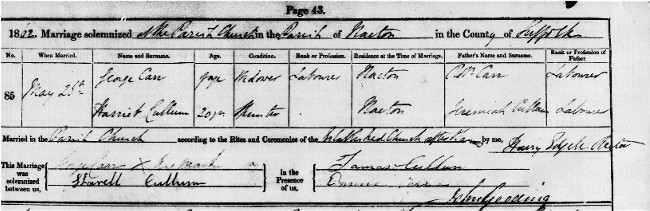 Page 43.
1862. Marriage solemnized at the Parish Church in the Parish of Nacton in the County of Suffolk
No. When Married. Name and Surname. Age. Condition. Rank or Profession. Residence at the Time of Marriage. Father's Name and Surname. Rank or Profession of Father.
85 May 21st George Carr Widower Labourer Nacton Carr Labourer
Harriet Cullum 20 yrs Spinster Nacton Jeremiah Cullum Labourer
Married in the Parish Church according to the Rites and Ceremonies of the Established Church after by me, Harry Edgell Rector
This Marriage was solemnized between us, George Carr X his Mark in the Presence of us, James Cullum
Cullum
John Gooding